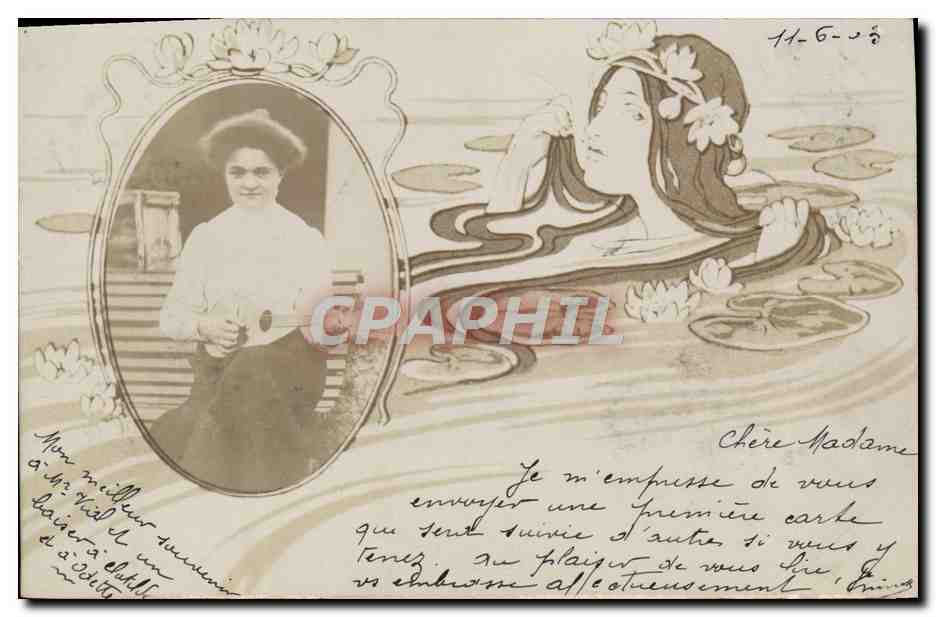 11-6-03
CPAPHIL
Chère Madame
Je m'empresse de vous
envoyer une première carte
que sera suivie d'autres si vous y
tenez. Au plaisir de vous lire, Je
vs embrasse affectueusement
Mon meilleur souvenir
à Mr Vial et un
baiser à Clotilde
et à Odette